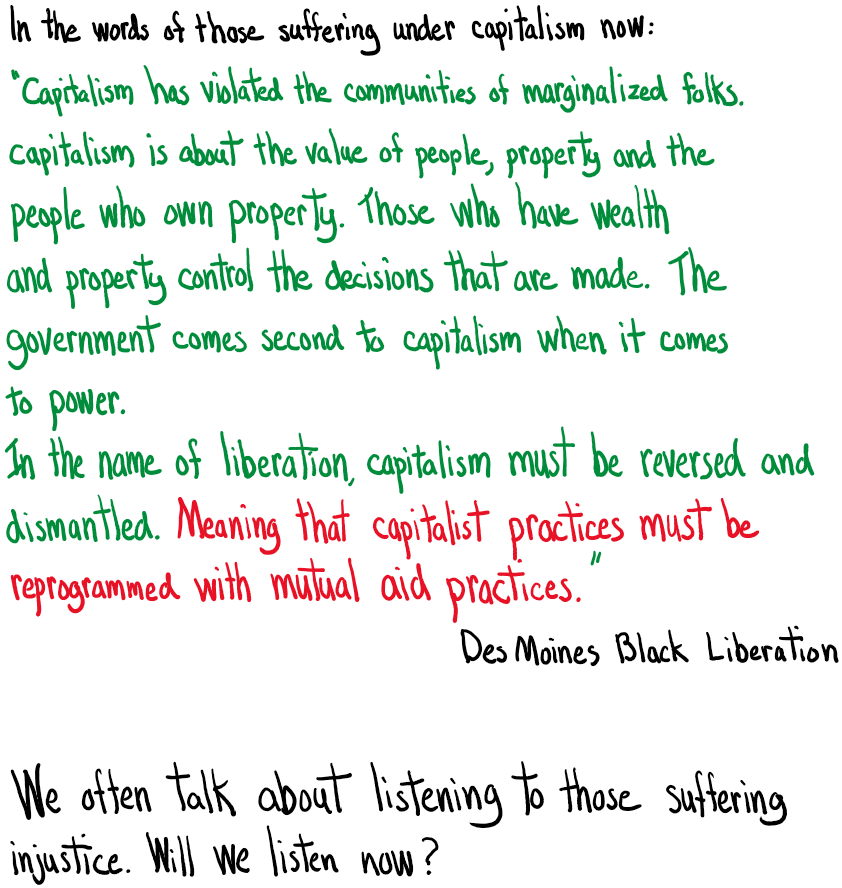 In the words of those suffering under capitalism now:
"Capitalism has violated the communities of marginalized folks.
capitalism is about the value of people, property and the
people who own property. Those who have wealth
and property control the decisions that are made. The
government comes second to capitalism when it comes
to power.
In the name of liberation, capitalism must be reversed and
dismantled. Meaning that capitalist practices must be
reprogrammed with mutual aid practices."
Des Moines Black Liberation
We often talk about listening to those suffering
injustice. Will we listen now?